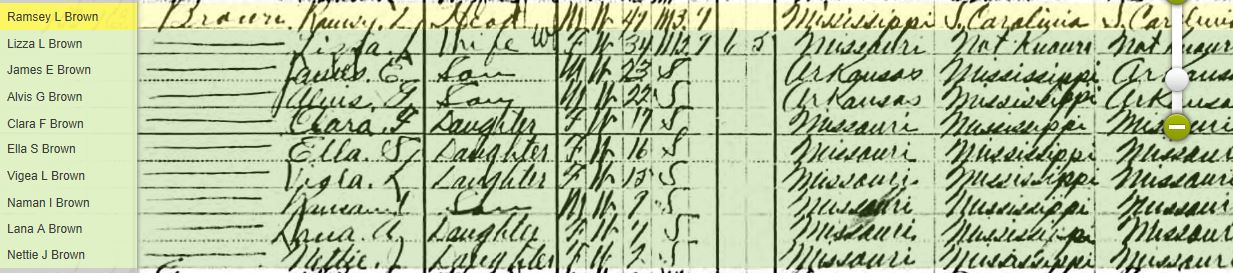 Ramsey L Brown Brown Ramsey L Head M W 47 M3 9 Mississippi S. Carolinia S. Carolinia
Lizza L Brown Lizza. L Wife W F W 34 M2 9 6 5 Missouri Not Known Not Known
James E Brown James. E Son M W 23 S Arkansas Mississippi Arkansas
Alvis G Brown Alvis. G Son M W 22 S Arkansas Mississippi Arkansas
Clara F Brown Clara. F Daughter F W 17 S Missouri Mississippi Missouri
Ella S Brown Ella. S Daughter F W 16 S Missouri Mississippi Missouri
Vigea L Brown L Daughter F W S Missouri Mississippi Missouri
Naman I Brown Son M W S Missouri Mississippi Missouri
Lana A Brown A Daughter F W 4 S Missouri Mississippi Missouri
Nettie J Brown Nettie. J Daughter F W 2 S Missouri Mississippi Missouri